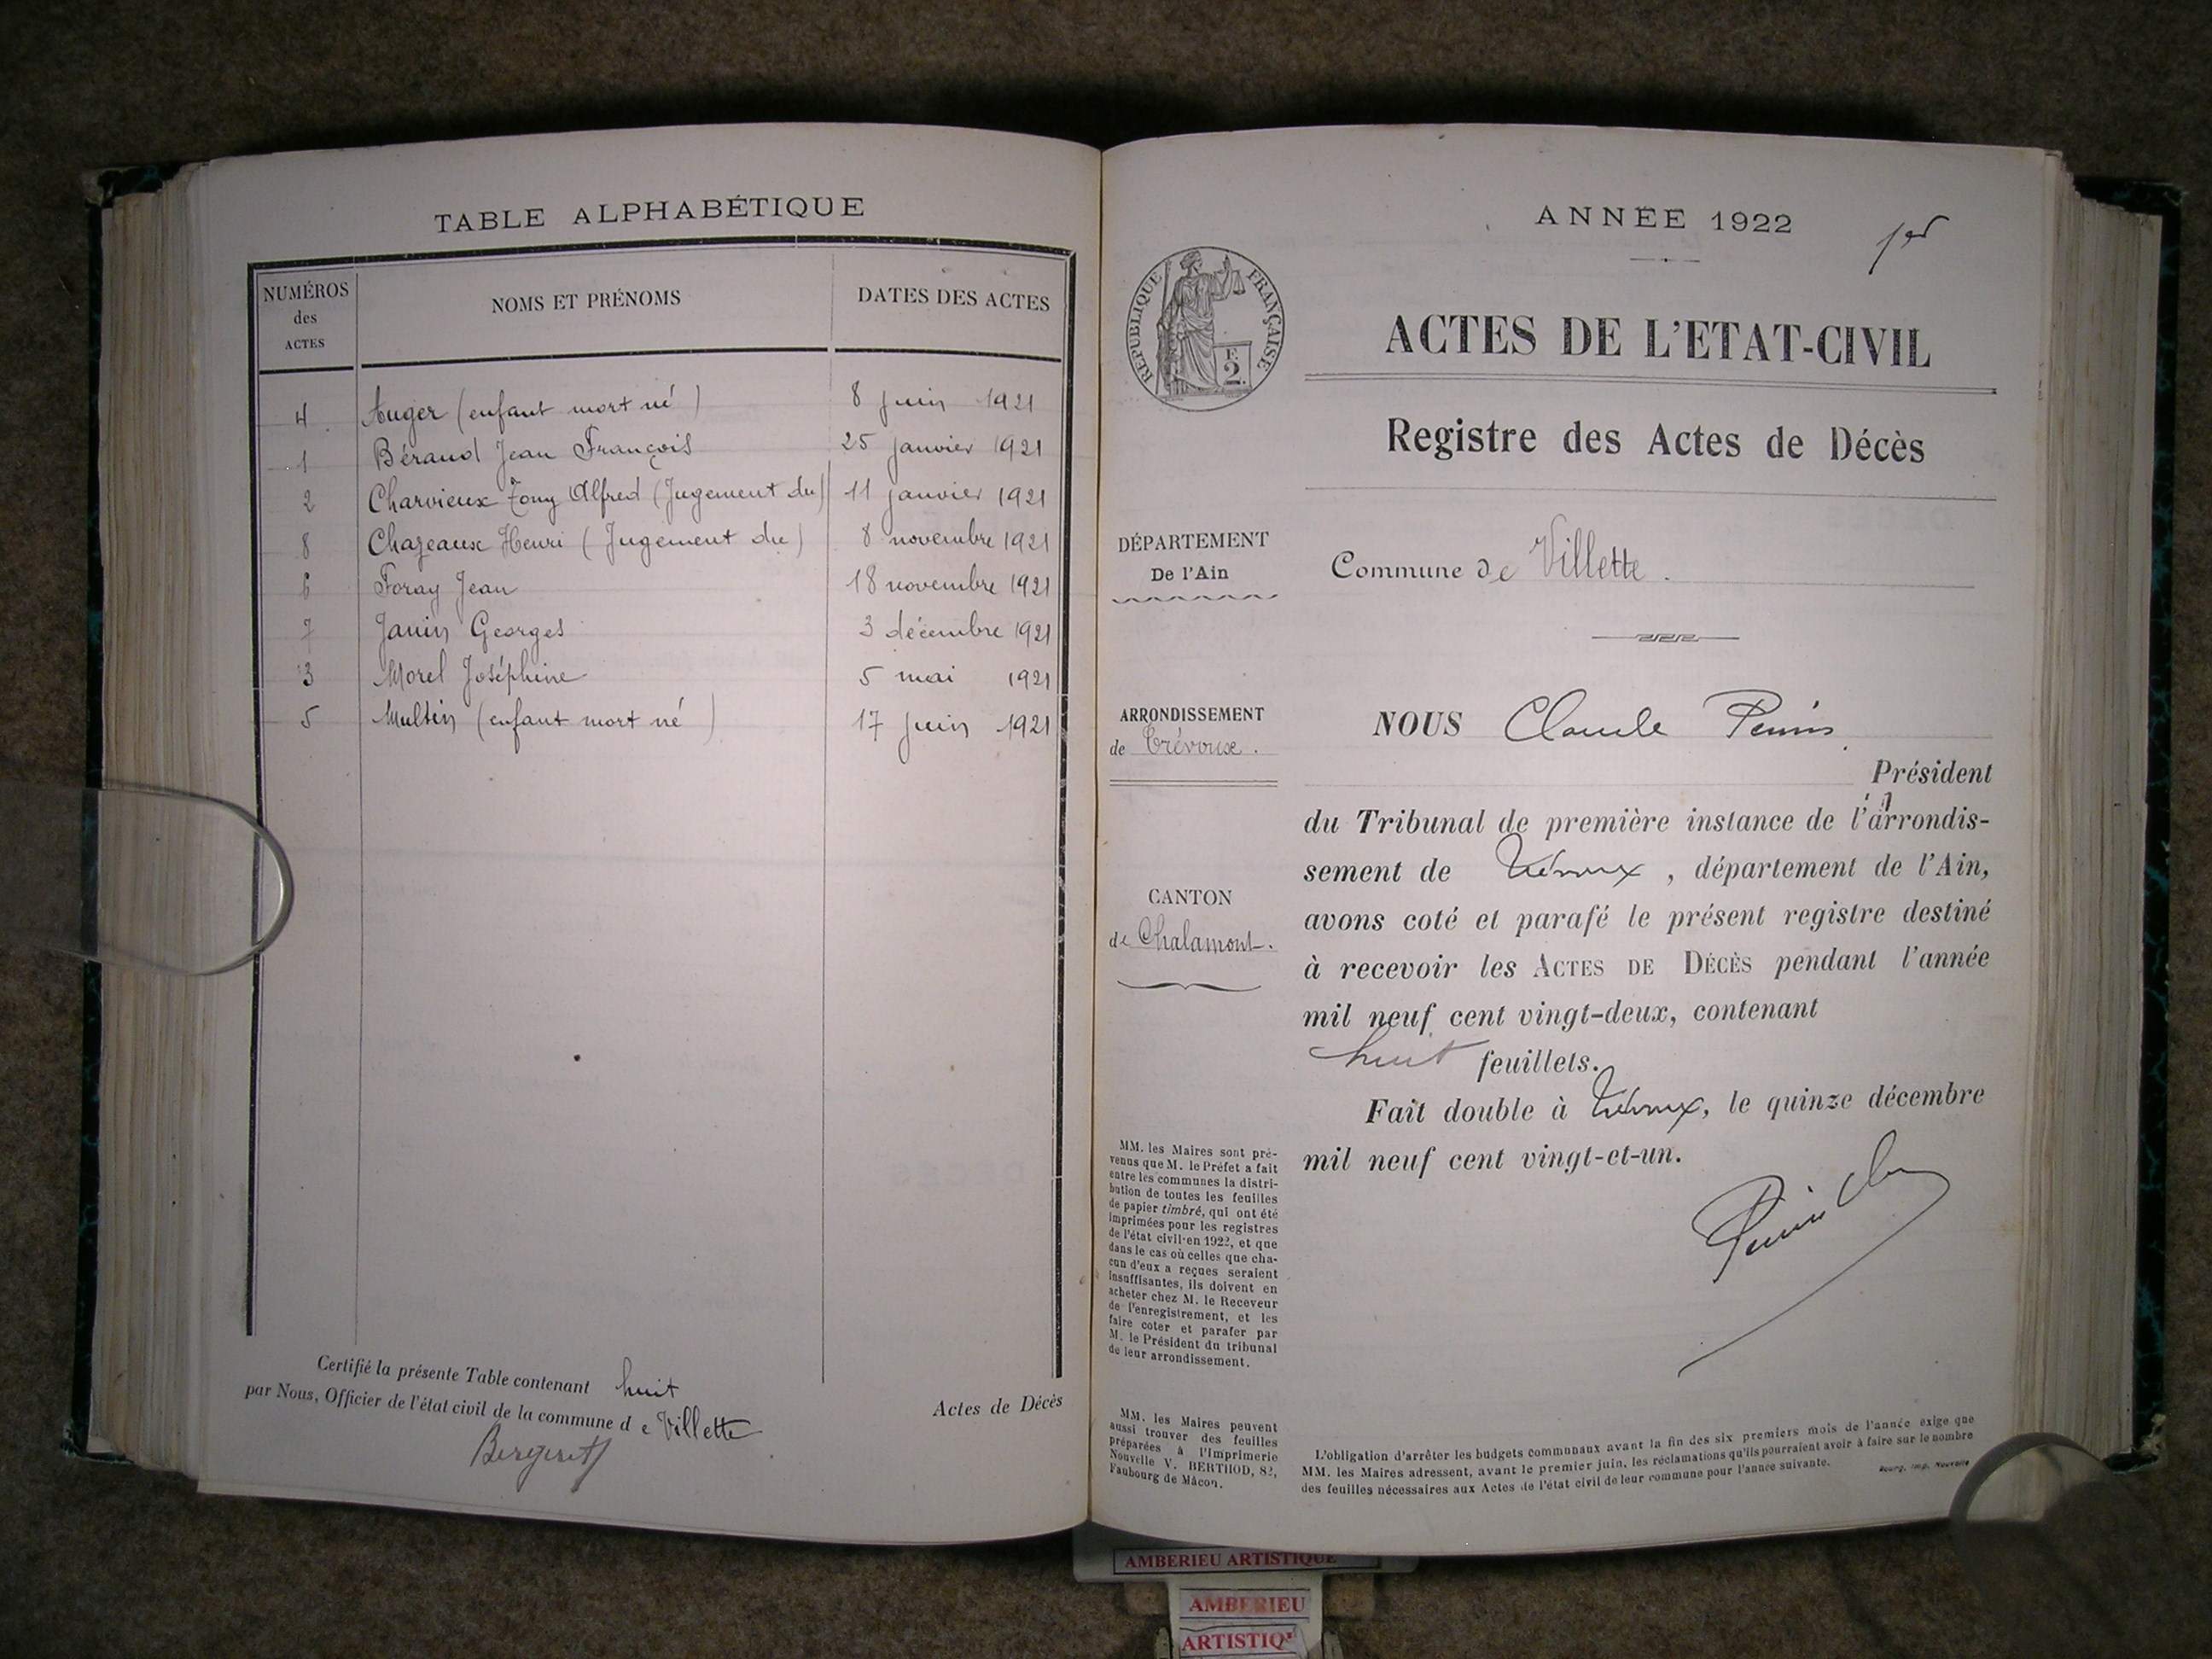 TABLE ALPHABÉTIQUE
NUMÉROS
des
ACTES
NOMS ET PRÉNOMS
DATES DES ACTES
4 Auger (enfant mort né) 8 juin 1921
1 Béraud Jean François 25 janvier 1921
2 Charvieux Tony Alfred (Jugement du) 11 janvier 1921
8 Chazeaux Henri (Jugement du) 8 novembre 1921
6 Foray Jean 18 novembre 1921
7 Janin Georges 3 décembre 1921
3 Morel Joséphine 5 mai 1921
5 Multin (enfant mort né) 17 juin 1921
Certifié la présente Table contenant huit Actes de Décès
par Nous, Officier de l'état civil de la commune de Villette
Bergeret
ANNÉE 1922
1er
RÉPUBLIQUE FRANÇAISE
F.
2.
ACTES DE L'ETAT-CIVIL
Registre des Actes de Décès
DÉPARTEMENT
De l'Ain
Commune de Villette.
ARRONDISSEMENT
de Trévoux.
CANTON
de Chalamont.
NOUS Claude
Président
du Tribunal de première instance de l'arrondis-
sement de Trévoux, département de l'Ain,
avons coté et parafé le présent registre destiné
à recevoir les ACTES DE DÉCÈS pendant l'année
mil neuf cent vingt-deux, contenant
huit feuillets.
Fait double à Trévoux, le quinze décembre
mil neuf cent vingt-et-un.
MM. les Maires sont pré-
venus que M. le Préfet a fait
entre les communes la distri-
bution de toutes les feuilles
de papier timbré, qui ont été
imprimées pour les registres
de l'état civil en 1922, et que
dans le cas où celles que cha-
cun d'eux a reçues seraient
insuffisantes, ils doivent en
acheter chez M. le Receveur
de l'enregistrement, et les
faire coter et parafer par
M. le Président du tribunal
de leur arrondissement.
MM. les Maires peuvent
aussi trouver des feuilles
préparées à l'Imprimerie
Nouvelle V. BERTHOD, 82,
Faubourg de Mâcon.
L'obligation d'arrêter les budgets communaux avant la fin des six premiers mois de l'année exige que
MM. les Maires adressent, avant le premier juin, les réclamations qu'ils pourraient avoir à faire sur le nombre
des feuilles nécessaires aux Actes de l'état civil de leur commune pour l'année suivante.
Bourg, Imp. Nouvelle
AMBERIEU ARTISTIQUE
AMBERIEU
ARTISTIQ